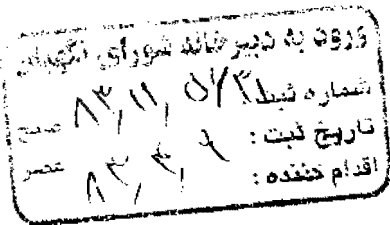 ورود به دبیرخانه شورای نگهبان
شماره ثبت: صبح
تاریخ ثبت: ۸۳/۴/۹ عصر
اقدام کننده: